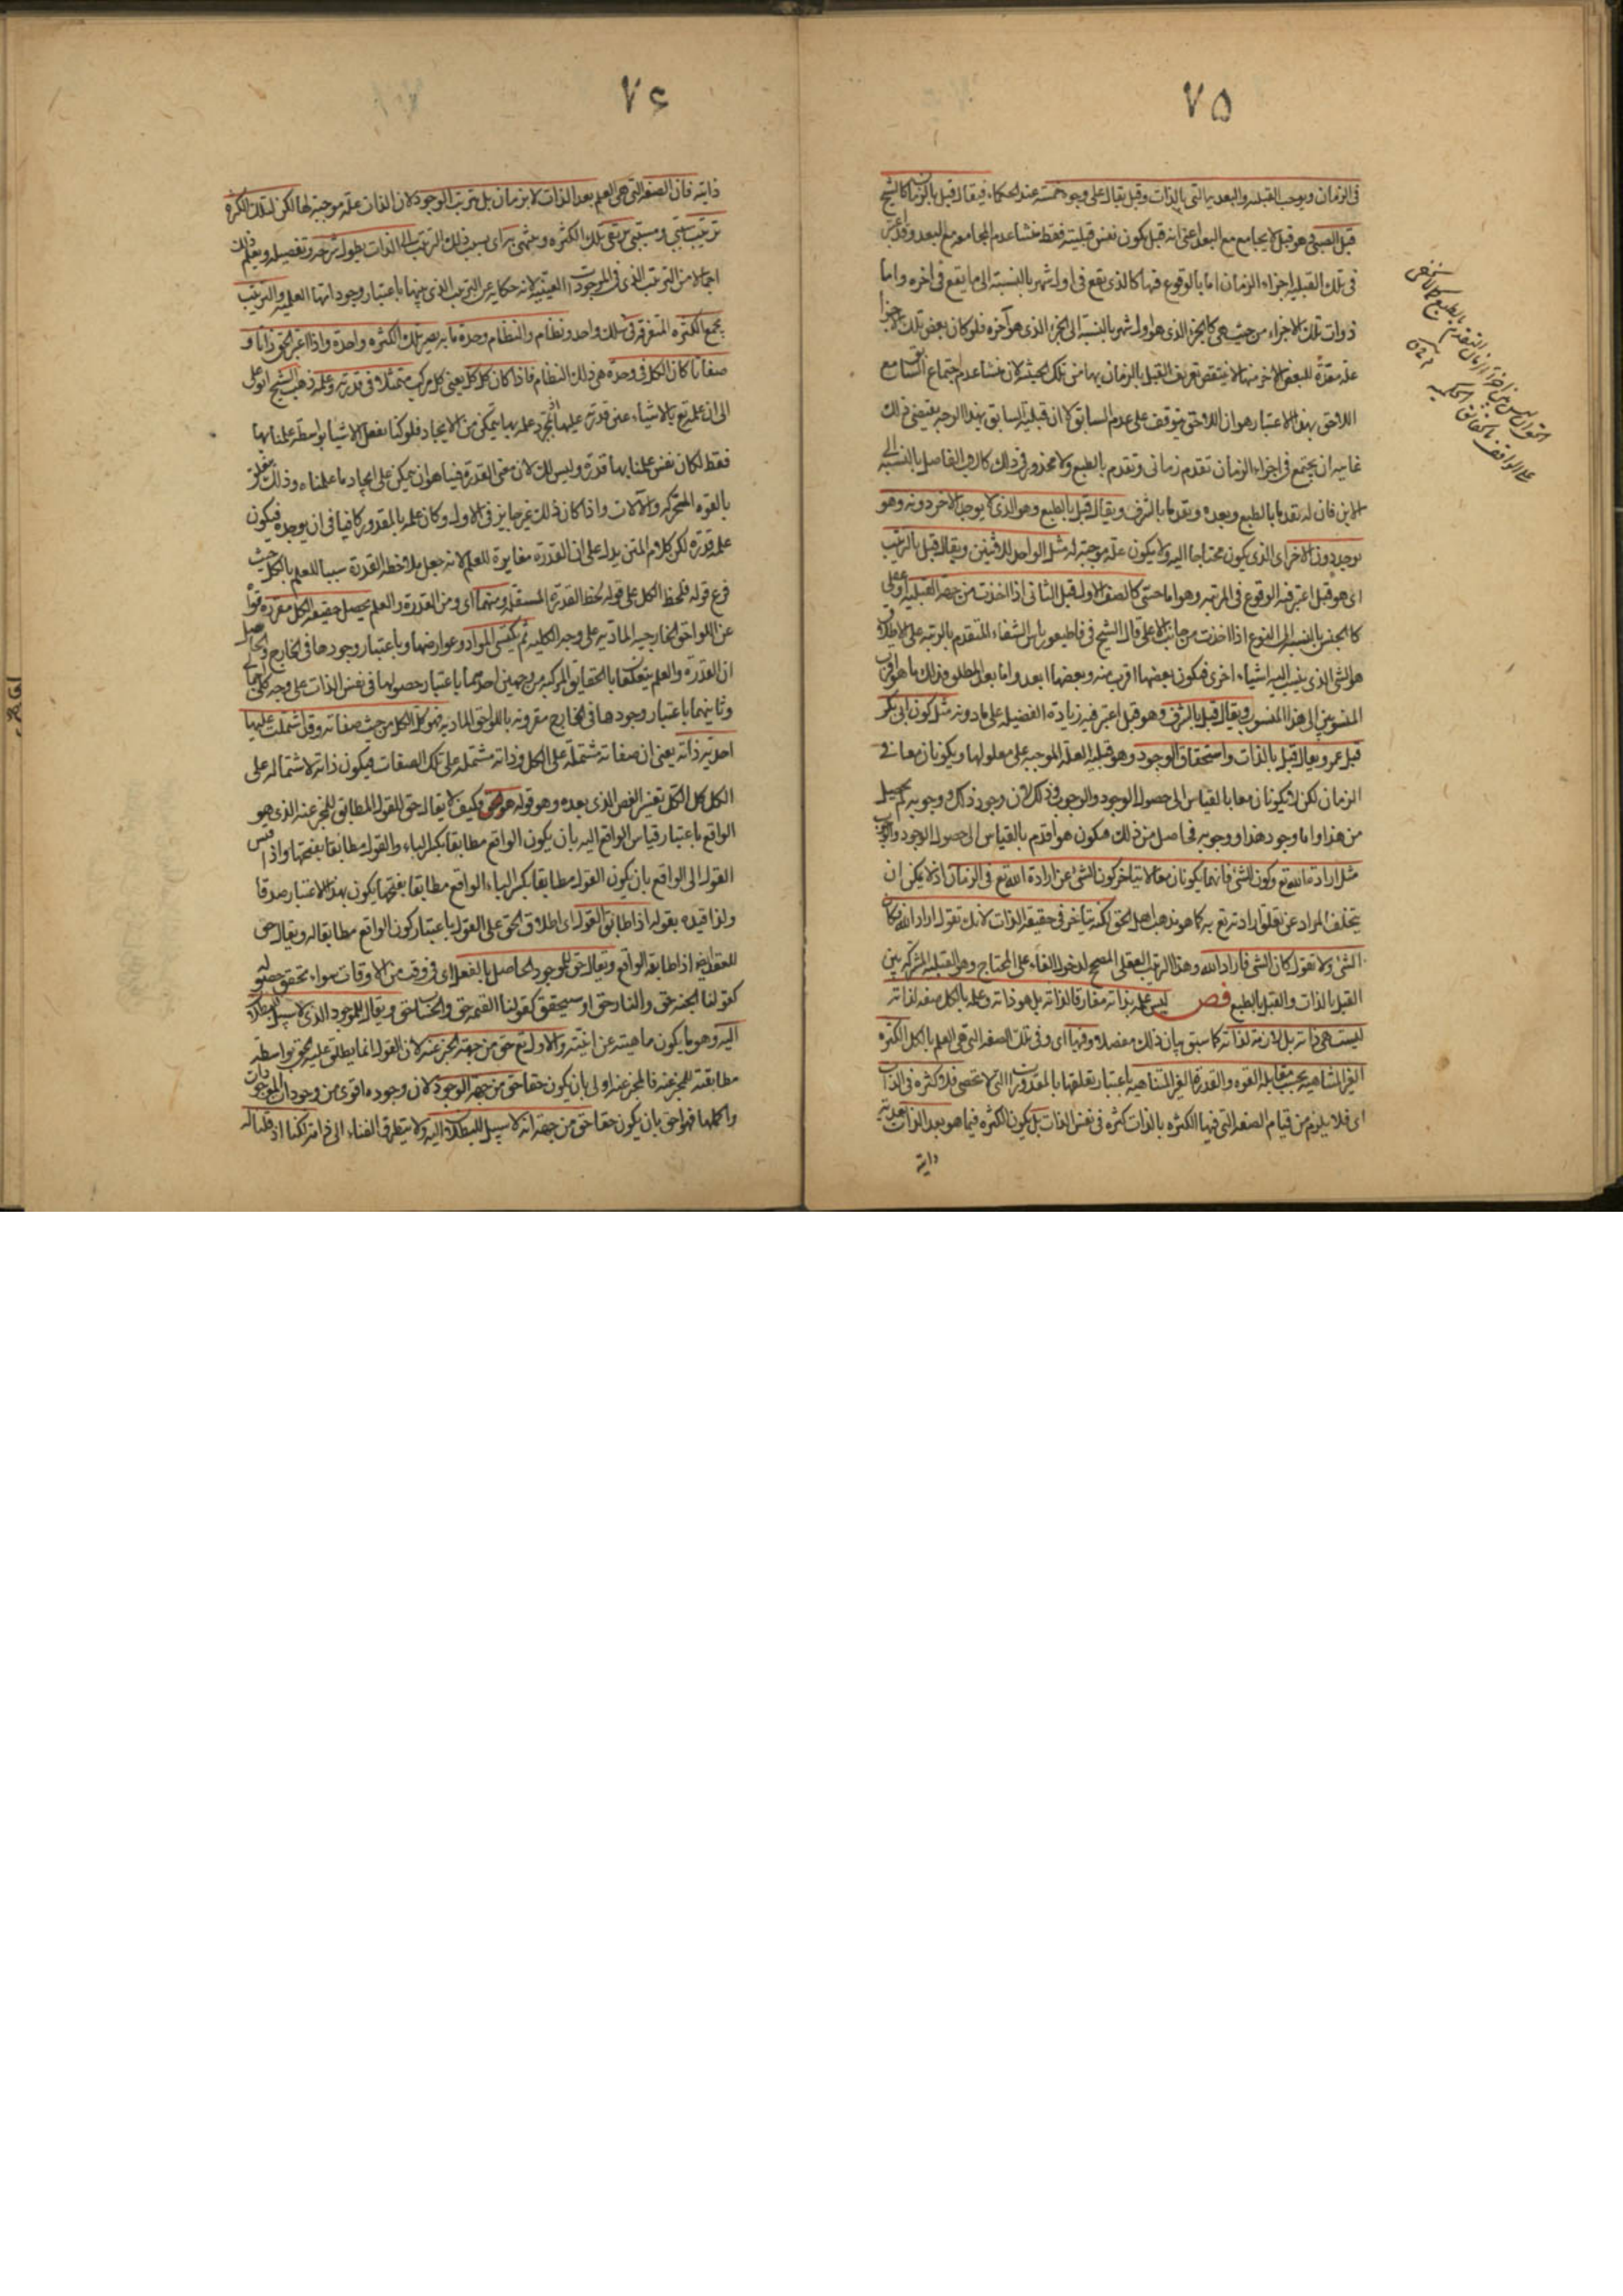 ٧٥
فى الزمان ويوجب القبلية والبعدية التى بالذات وقبل يقال على وجوه خمسة عند الحكماء فيقال قبل بالزمان كالشيخ
قبل الصبى وهو قبل لا يجامع مع البعد اعنى انه قبل يكون نفس قبليته فقط منشا عدم المجامعة مع البعد وقد
فى تلك القبلية اجزاء الزمان اما بالوقوع فيها كالذى يقع فى اول شهر بالنسبة الى ما يقع فى اخره واما
ذوات تلك الاجزاء من حيث هى كالجزء الذى هو اول شهر بالنسبة الى الجزء الذى هو آخره فلو كان بعض تلك الاجزا
علة معدة للبعض الاخر منها لا ينتقض تعريف القبل بالزمان بها من تلك الحيثية لان منشا عدم اجتماع السابق مع
اللاحق بهذا الاعتبار هو ان اللاحق يتوقف على عدم السابق لا ان قبلية السابق بهذا الوجه يقتضى ذلك
غايته ان يجتمع فى اجزاء الزمان تقدم زمانى وتقدم بالطبع ولا محذور فى ذلك كالاب الفاضل بالنسبة الى
الابن فان له تقدما بالطبع وبعده وتقدما بالشرف ويقال قبل بالطبع وهو الذى لا يوجد الاخر دونه وهو
يوجد دون الاخر اى الذى يكون محتاجا اليه ولا يكون علة موجبة له مثل الواحد للاثنين ويقال قبل بالترتيب
اى هو قبل اعتبر فيه الوقوع فى المرتبة وهو اما حسى كالصف الاول قبل الثانى اذا اخذت من جهة القبلة او عقلى
كالجنس بالنسبة الى النوع اذا اخذت من جانب الاعلى قال الشيخ فى قاطيغورياس الشفاء المتقدم بالرتبة على الاطلاق
هو الشئ الذى ينسب اليه اشياء اخرى فيكون بعضها اقرب منه وبعضها ابعد واما بعد المطلق فذلك ما هو اقرب
المنسوبين الى هذا المنسوب ويقال قبل بالشرف وهو قبل اعتبر فيه زيادة الفضيلة على ما دونه مثل كون ابى بكر
قبل عمر ويقال قبل بالذات واستحقاق الوجود وهو قبلية العلة الموجبة على معلولها ويكونان معا فى
الزمان لكن لا يكونان معا بالقياس الى حصول الوجود والوجوب وذلك لان وجود ذلك ووجوبه لم يحصل
من هذا واما وجود هذا ووجوبه فحاصل من ذلك فيكون هو اقدم بالقياس الى حصول الوجود والوجوب
مثل ارادة الله تع وكون الشئ فانهما يكونان معا لا يتاخر كون الشئ عن ارادة الله تع فى الزمان اذ لا يمكن ان
يتخلف المراد عن تعلق ارادته تع به كما هو مذهب اهل الحق لكنه يتاخر فى حقيقة الذات لانك تقول اراد الله فكان
الشئ ولا تقول كان الشئ فاراد الله وهذا الترتيب العقلى المصحح لدخول الفاء على المحتاج وهو القبلية المشتركة بين
القبل بالذات والقبل بالطبع فص ليس علمه بذاته مفارقا لذاته بل هو ذاته وعلمه بالكل صفة لذاته
ليست هى ذاته بل لازمة لذاته كما سبق بيان ذلك مفصلا وفيها اى وفى تلك الصفة التى هى العلم بالكل الكثرة
الغير المتناهية بحسب مقابلة القوة والقدرة الغير المتناهية باعتبار تعلقها بالمقدورات التى لا تحصى فلا كثرة فى الذات
اى فلا يلزم من قيام الصفة التى فيها الكثرة بالذات كثرة فى نفس الذات بل يكون الكثرة فيما هو بعد الذات بعدية
ذاتية
٧٤
ذاتية فان الصفة التى هى العلم بعد الذات لا بزمان بل بترتيب الوجود لان الذات علة موجبة لها لكن لتلك الكثرة
ترتيب سببى ومسببى يرتقى تلك الكثرة وينتهى به اى بسبب ذلك الترتيب الى الذات يطول شرحه وتفصيله ويعلم ذلك
اجمالا من الترتيب الذى فى الموجودات العينية لانه حكاية عن الترتيب الذى بينها باعتبار وجوداتها العلمية والترتيب
يجمع الكثرة المتفرقة فى سلك واحد ونظام والنظام وحدة ما به يصير تلك الكثرة واحدة واذا اعتبر الحق ذاتا و
صفاتا كان الكل فى وحدة هى ذلك النظام فاذا كان كل كل يعنى كل مركب متمثلا فى قدرته وعلمه ذهب الشيخ ابو على
الى ان علمه تع بالاشياء عين قدرته عليها اذ بمجرد علمه بها يتمكن من الايجاد فلو كنا نفعل الاشيا بواسطة علمنا بها
فقط لكان نفس علمنا بها قدرة وليس كذلك لان معنى القدرة فينا هو ان يتمكن على ايجاد ما علمناه وذلك
بالقوة المحركة والآلات واذا كان ذلك غير جايز فى الاول وكان علمه بالمقدور كافيا فى ان يوجده فيكون
علمه قدرة لكن كلام المتن يدل على ان القدرة مغايرة للعلم لانه جعل ملاحظة القدرة سببا للعلم بالكل حيث
فرع قوله فلحظ الكل على قوله لحظ القدرة المستقلة ومنهما اى ومن القدرة والعلم يحصل حقيقة الكل مفرزة
عن اللواحق الخارجية المادية على وجه الكلية ثم يكتسى المواد وعوارضها وباعتبار وجودها فى الخارج والحاصل
ان القدرة والعلم يتعلقان بالحقايق المركبة من جهتين احدهما باعتبار حصولها فى نفس الذات على وجه كلى
وثانيهما باعتبار وجودها فى الخارج مقرونة باللواحق المادية فهو كل الكل من حيث صفاته وقد اشتملت عليها
احدية ذاته يعنى ان صفاته مشتملة على الكل وذاته مشتملة على تلك الصفات فيكون ذاته لاشتماله على
الكل كل الكل تفسير الفص الذى بعده وهو قوله هو الحق وكيف لا يقال حق للقول المطابق للمخبر عنه الذى هو
الواقع باعتبار قياس الواقع اليه بان يكون الواقع مطابقا بكسر الباء والقول مطابقا بفتحها واذا قيس
القول الى الواقع بان يكون القول مطابقا بكسر الباء الواقع مطابقا بفتحها يكون بهذا الاعتبار صدقا
ولذا قيده بقوله اذا طابق القول اى اطلاق الحق على القول باعتبار كون الواقع مطابقا له ويقال حق
للعقد ايضا اذا طابقه الواقع ويقال حق للموجود الحاصل بالفعل اى فى وقت من الاوقات سواء تحقق حصوله
كقولنا الجنة حق والنار حق او سيحقق كقولنا القيمة حق والحساب حق ويقال للموجود الذى لا سبيل للبطلان
اليه وهو ما يكون ماهيته عين انيته والاول تع حق من جهة المخبر عنه لان القول انما يطلق عليه الحق بواسطة
مطابقته للمخبر عنه فالمخبر عنه اولى بان يكون حقا حق من جهة الوجود لان وجوده اقوى من وجودات الموجودات
واكملها فهو احق بان يكون حقا حق من جهة انه لا سبيل للبطلان اليه ولا يتطرق الفناء الى خامته لكنا اذ قلنا له